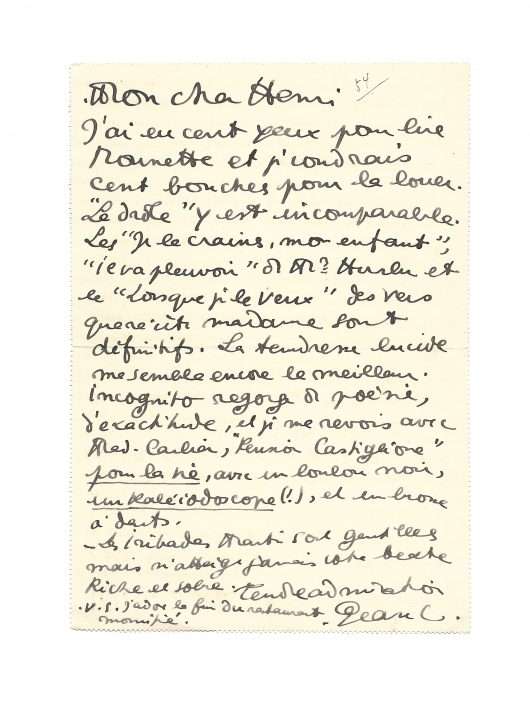 Mon cher Henri 54
J'ai eu cent yeux pour lire
Nounette et je voudrais
cent bouches pour la louer.
"Le drôle" y est incomparable.
Les "Je le crains, mon enfant",
"il va pleuvoir" de Mr Hurlu et
le "Lorsque je le veux" des vers
que récite madame sont
définitifs. La tendresse lucide
me semble encore le meilleur.
Incognito regorge de poésie,
d'exactitude, et je me revois avec
Mad. Carlier, "Pension Castiglione"
pour la , avec un loulou noir,
un Kaléidoscope (!), et un
à dents.
– Les Marti sont gentilles
mais n'atteignent jamais votre
Riche et sobre. Tendre admiration
j'adore la fin du restaurant Jean C.
momifié.